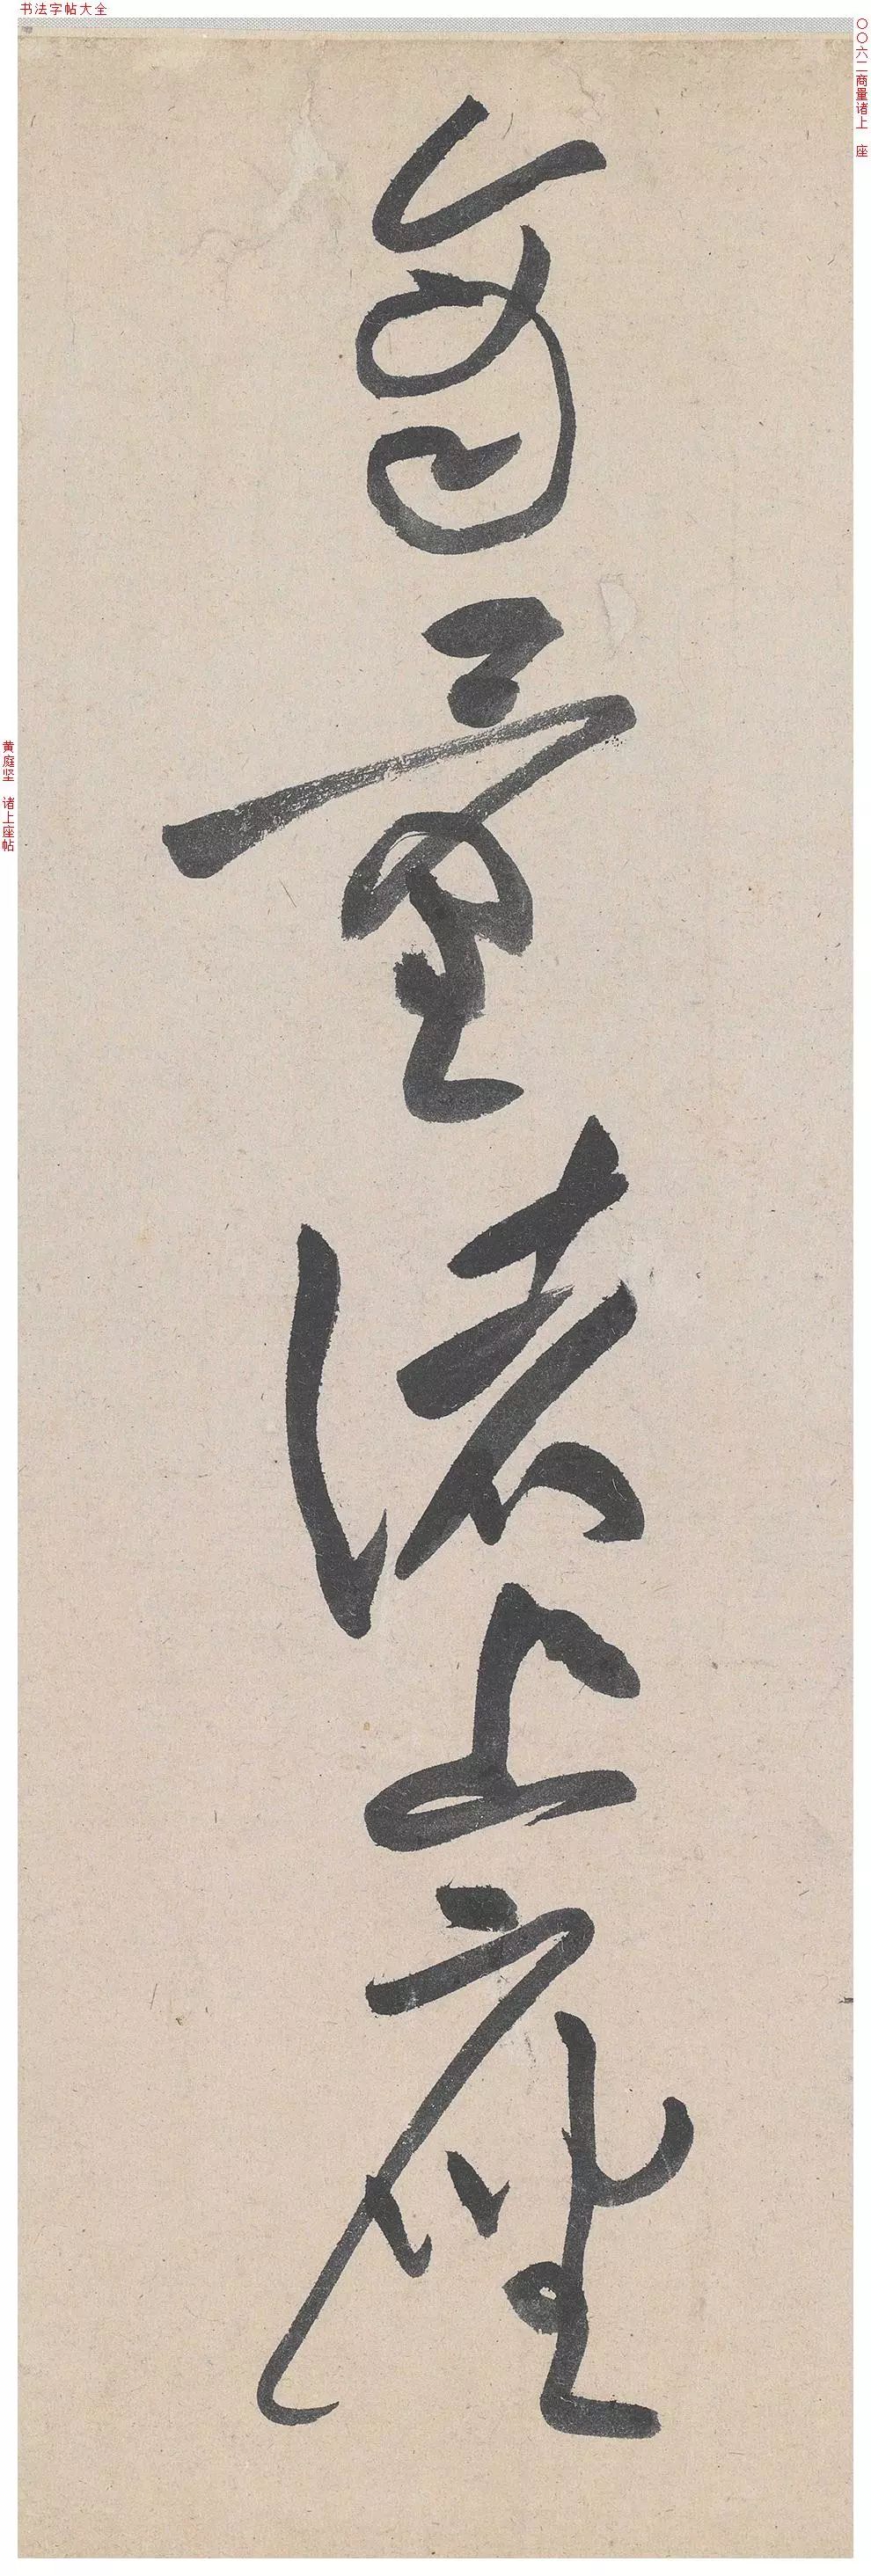 书法字帖大全
〇〇六二商量诸上 座
商量諸上座
黄庭坚 诸上座帖